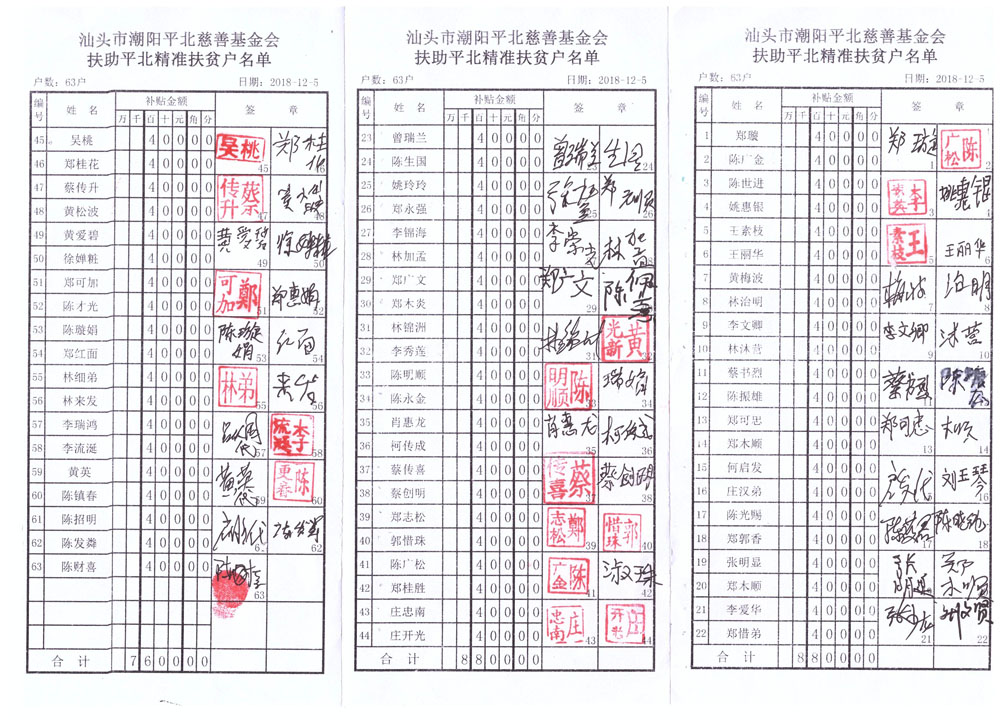 汕头市潮阳平北慈善基金会
扶助平北精准扶贫户名单
户数：63户 日期：2018-12-5
编号 姓名 补贴金额 签章
万 千 百 十 元 角 分
45 吴桃 4 0 0 0 0 吴桃
46 郑桂花 4 0 0 0 0 郑桂花
47 蔡传升 4 0 0 0 0 蔡传升
48 黄松波 4 0 0 0 0
49 黄爱碧 4 0 0 0 0 黄爱碧
50 徐婵粧 4 0 0 0 0
51 郑可加 4 0 0 0 0 郑可加
52 陈才光 4 0 0 0 0 郑惠娟
53 陈璇娟 4 0 0 0 0 陈璇娟
54 郑红面 4 0 0 0 0 红面
55 林细弟 4 0 0 0 0 林弟
56 林来发 4 0 0 0 0 来发
57 李瑞鸿 4 0 0 0 0
58 李流涎 4 0 0 0 0
59 黄英 4 0 0 0 0 黄英
60 陈镇春 4 0 0 0 0
61 陈招明 4 0 0 0 0
62 陈发粦 4 0 0 0 0
63 陈财喜 4 0 0 0 0
合计 7 6 0 0 0 0
汕头市潮阳平北慈善基金会
扶助平北精准扶贫户名单
户数：63户 日期：2018-12-5
编号 姓名 补贴金额 签章
万 千 百 十 元 角 分
23 曾瑞兰 4 0 0 0 0 曾瑞兰
24 陈生国 4 0 0 0 0 生国
25 姚玲玲 4 0 0 0 0
26 郑永强 4 0 0 0 0
27 李锦海 4 0 0 0 0
28 林加孟 4 0 0 0 0
29 郑广文 4 0 0 0 0 郑广文
30 郑木炎 4 0 0 0 0
31 林锦洲 4 0 0 0 0
32 李秀莲 4 0 0 0 0 黄光新
33 陈明顺 4 0 0 0 0 陈明顺
34 陈永金 4 0 0 0 0
35 肖惠龙 4 0 0 0 0 肖惠龙
36 柯传成 4 0 0 0 0
37 蔡传喜 4 0 0 0 0 蔡传喜
38 蔡创明 4 0 0 0 0 蔡创明
39 郑志松 4 0 0 0 0 郑志松
40 郭惜珠 4 0 0 0 0 郭惜珠
41 陈广松 4 0 0 0 0 陈广金
42 郑桂胜 4 0 0 0 0
43 庄忠南 4 0 0 0 0 庄忠南
44 庄开光 4 0 0 0 0
合计 8 8 0 0 0 0
汕头市潮阳平北慈善基金会
扶助平北精准扶贫户名单
户数：63户 日期：2018-12-5
编号 姓名 补贴金额 签章
万 千 百 十 元 角 分
1 郑璇 4 0 0 0 0 郑璇
2 陈广金 4 0 0 0 0 陈广松
3 陈世进 4 0 0 0 0
4 姚惠银 4 0 0 0 0 姚惠银
5 王素枝 4 0 0 0 0 王素枝
6 王丽华 4 0 0 0 0 王丽华
7 黄梅波 4 0 0 0 0 梅波
8 林治明 4 0 0 0 0 治明
9 李文卿 4 0 0 0 0 李文卿
10 林沐营 4 0 0 0 0 沐营
11 蔡书烈 4 0 0 0 0
12 陈振雄 4 0 0 0 0
13 郑可思 4 0 0 0 0
14 郑木顺 4 0 0 0 0 木顺
15 何启发 4 0 0 0 0
16 庄汉弟 4 0 0 0 0 刘玉琴
17 陈光赐 4 0 0 0 0
18 郑郭香 4 0 0 0 0
19 张明显 4 0 0 0 0
20 郑木顺 4 0 0 0 0
21 李爱华 4 0 0 0 0
22 郑惜弟 4 0 0 0 0
合计 8 8 0 0 0 0